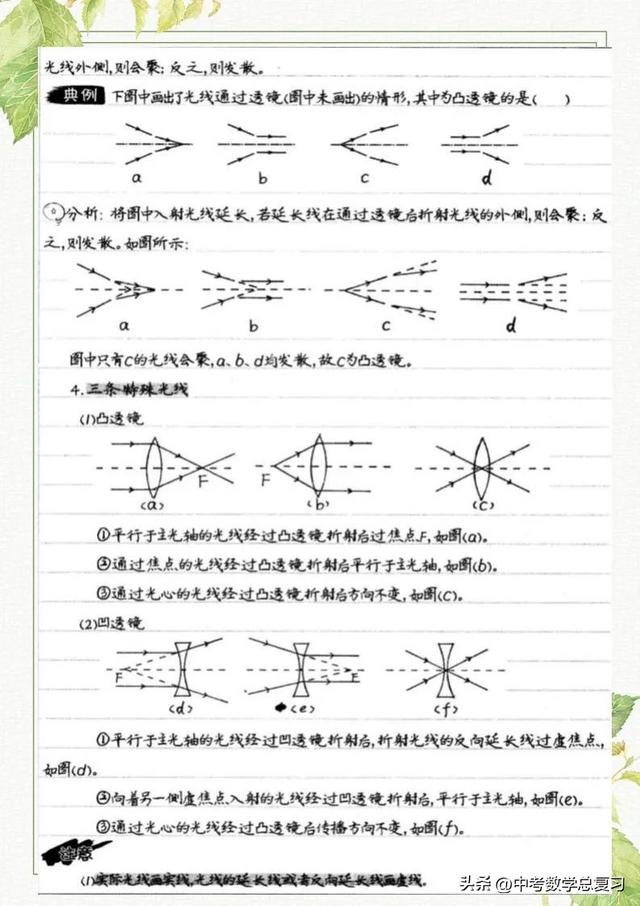 光线外侧,则会聚;反之,则发散。
典例 下图中画出了光线通过透镜(图中未画出)的情形,其中为凸透镜的是( )
a b c d
分析:将图中入射光线延长,若延长线在通过透镜后折射光线的外侧,则会聚;反
之,则发散。如图所示:
a b c d
图中只有c的光线会聚,a、b、d均发散,故c为凸透镜。
4.三条特殊光线
(1)凸透镜
F F
(a) (b) (c)
①平行于主光轴的光线经过凸透镜折射后过焦点F,如图(a)。
②通过焦点的光线经过凸透镜折射后平行于主光轴,如图(b)。
③通过光心的光线经过凸透镜折射后方向不变,如图(c)。
(2)凹透镜
F F
(d) (e) (f)
①平行于主光轴的光线经过凹透镜折射后,折射光线的反向延长线过虚焦点,
如图(d)。
②向着另一侧虚焦点入射的光线经过凹透镜折射后,平行于主光轴,如图(e)。
③通过光心的光线经过凸透镜后传播方向不变,如图(f)。
注意
(1)实际光线画实线,光线的延长线或者反向延长线画虚线。
头条 @中考数学总复习